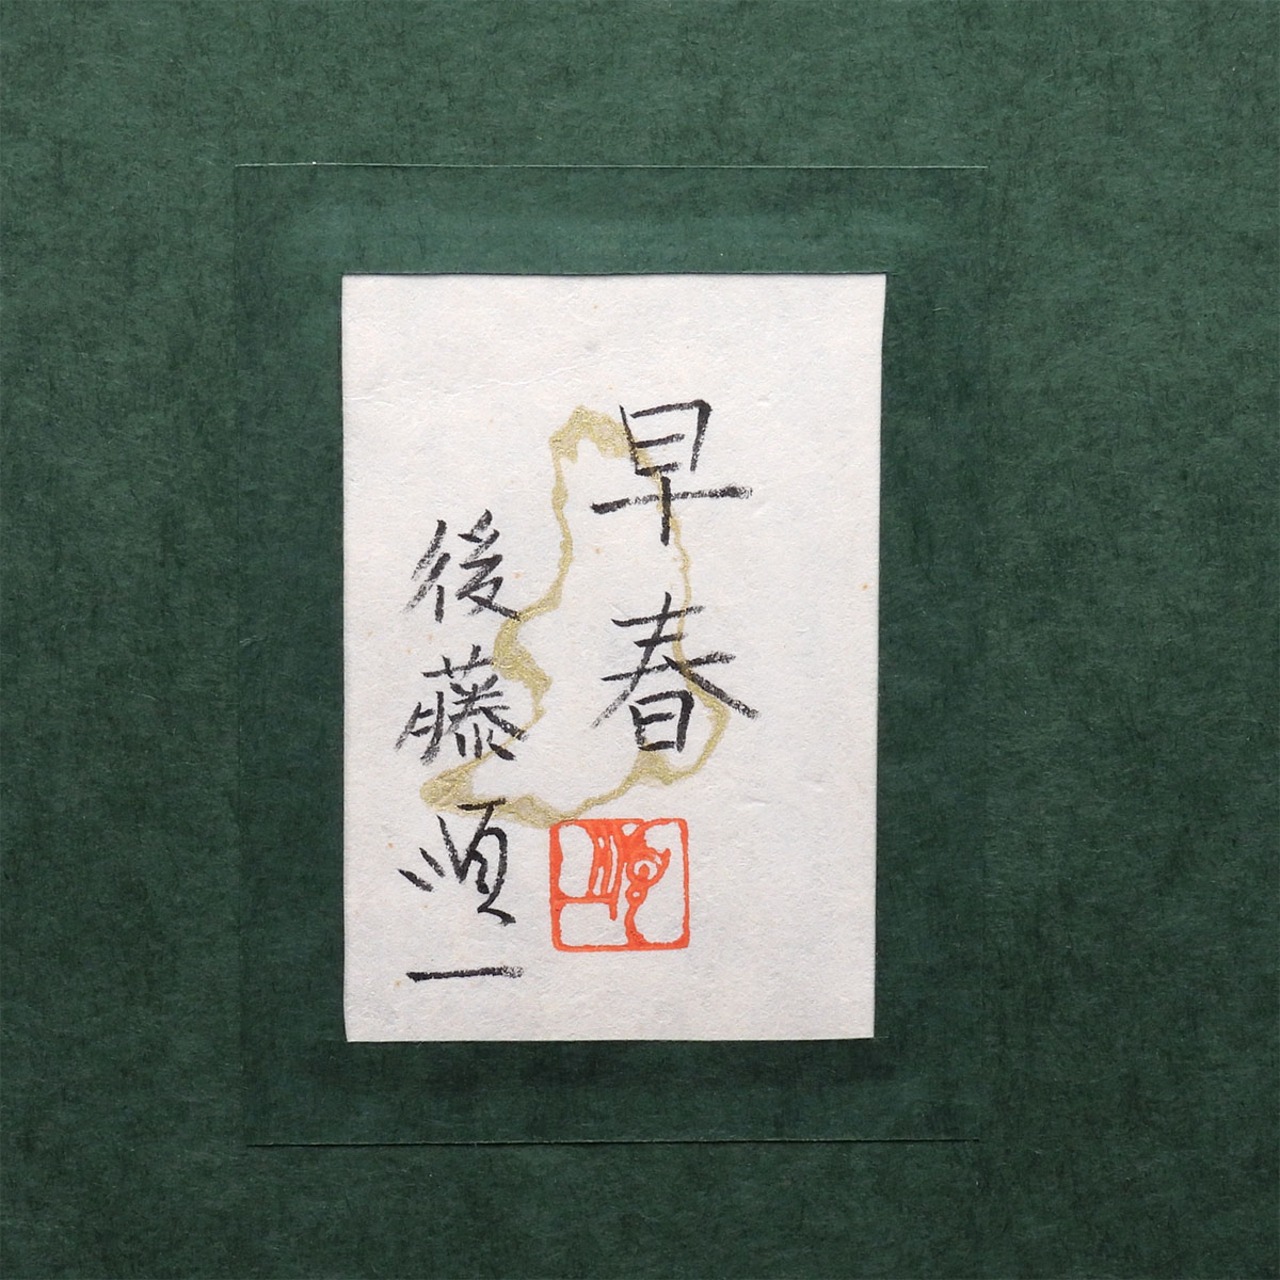 早春
後藤順一